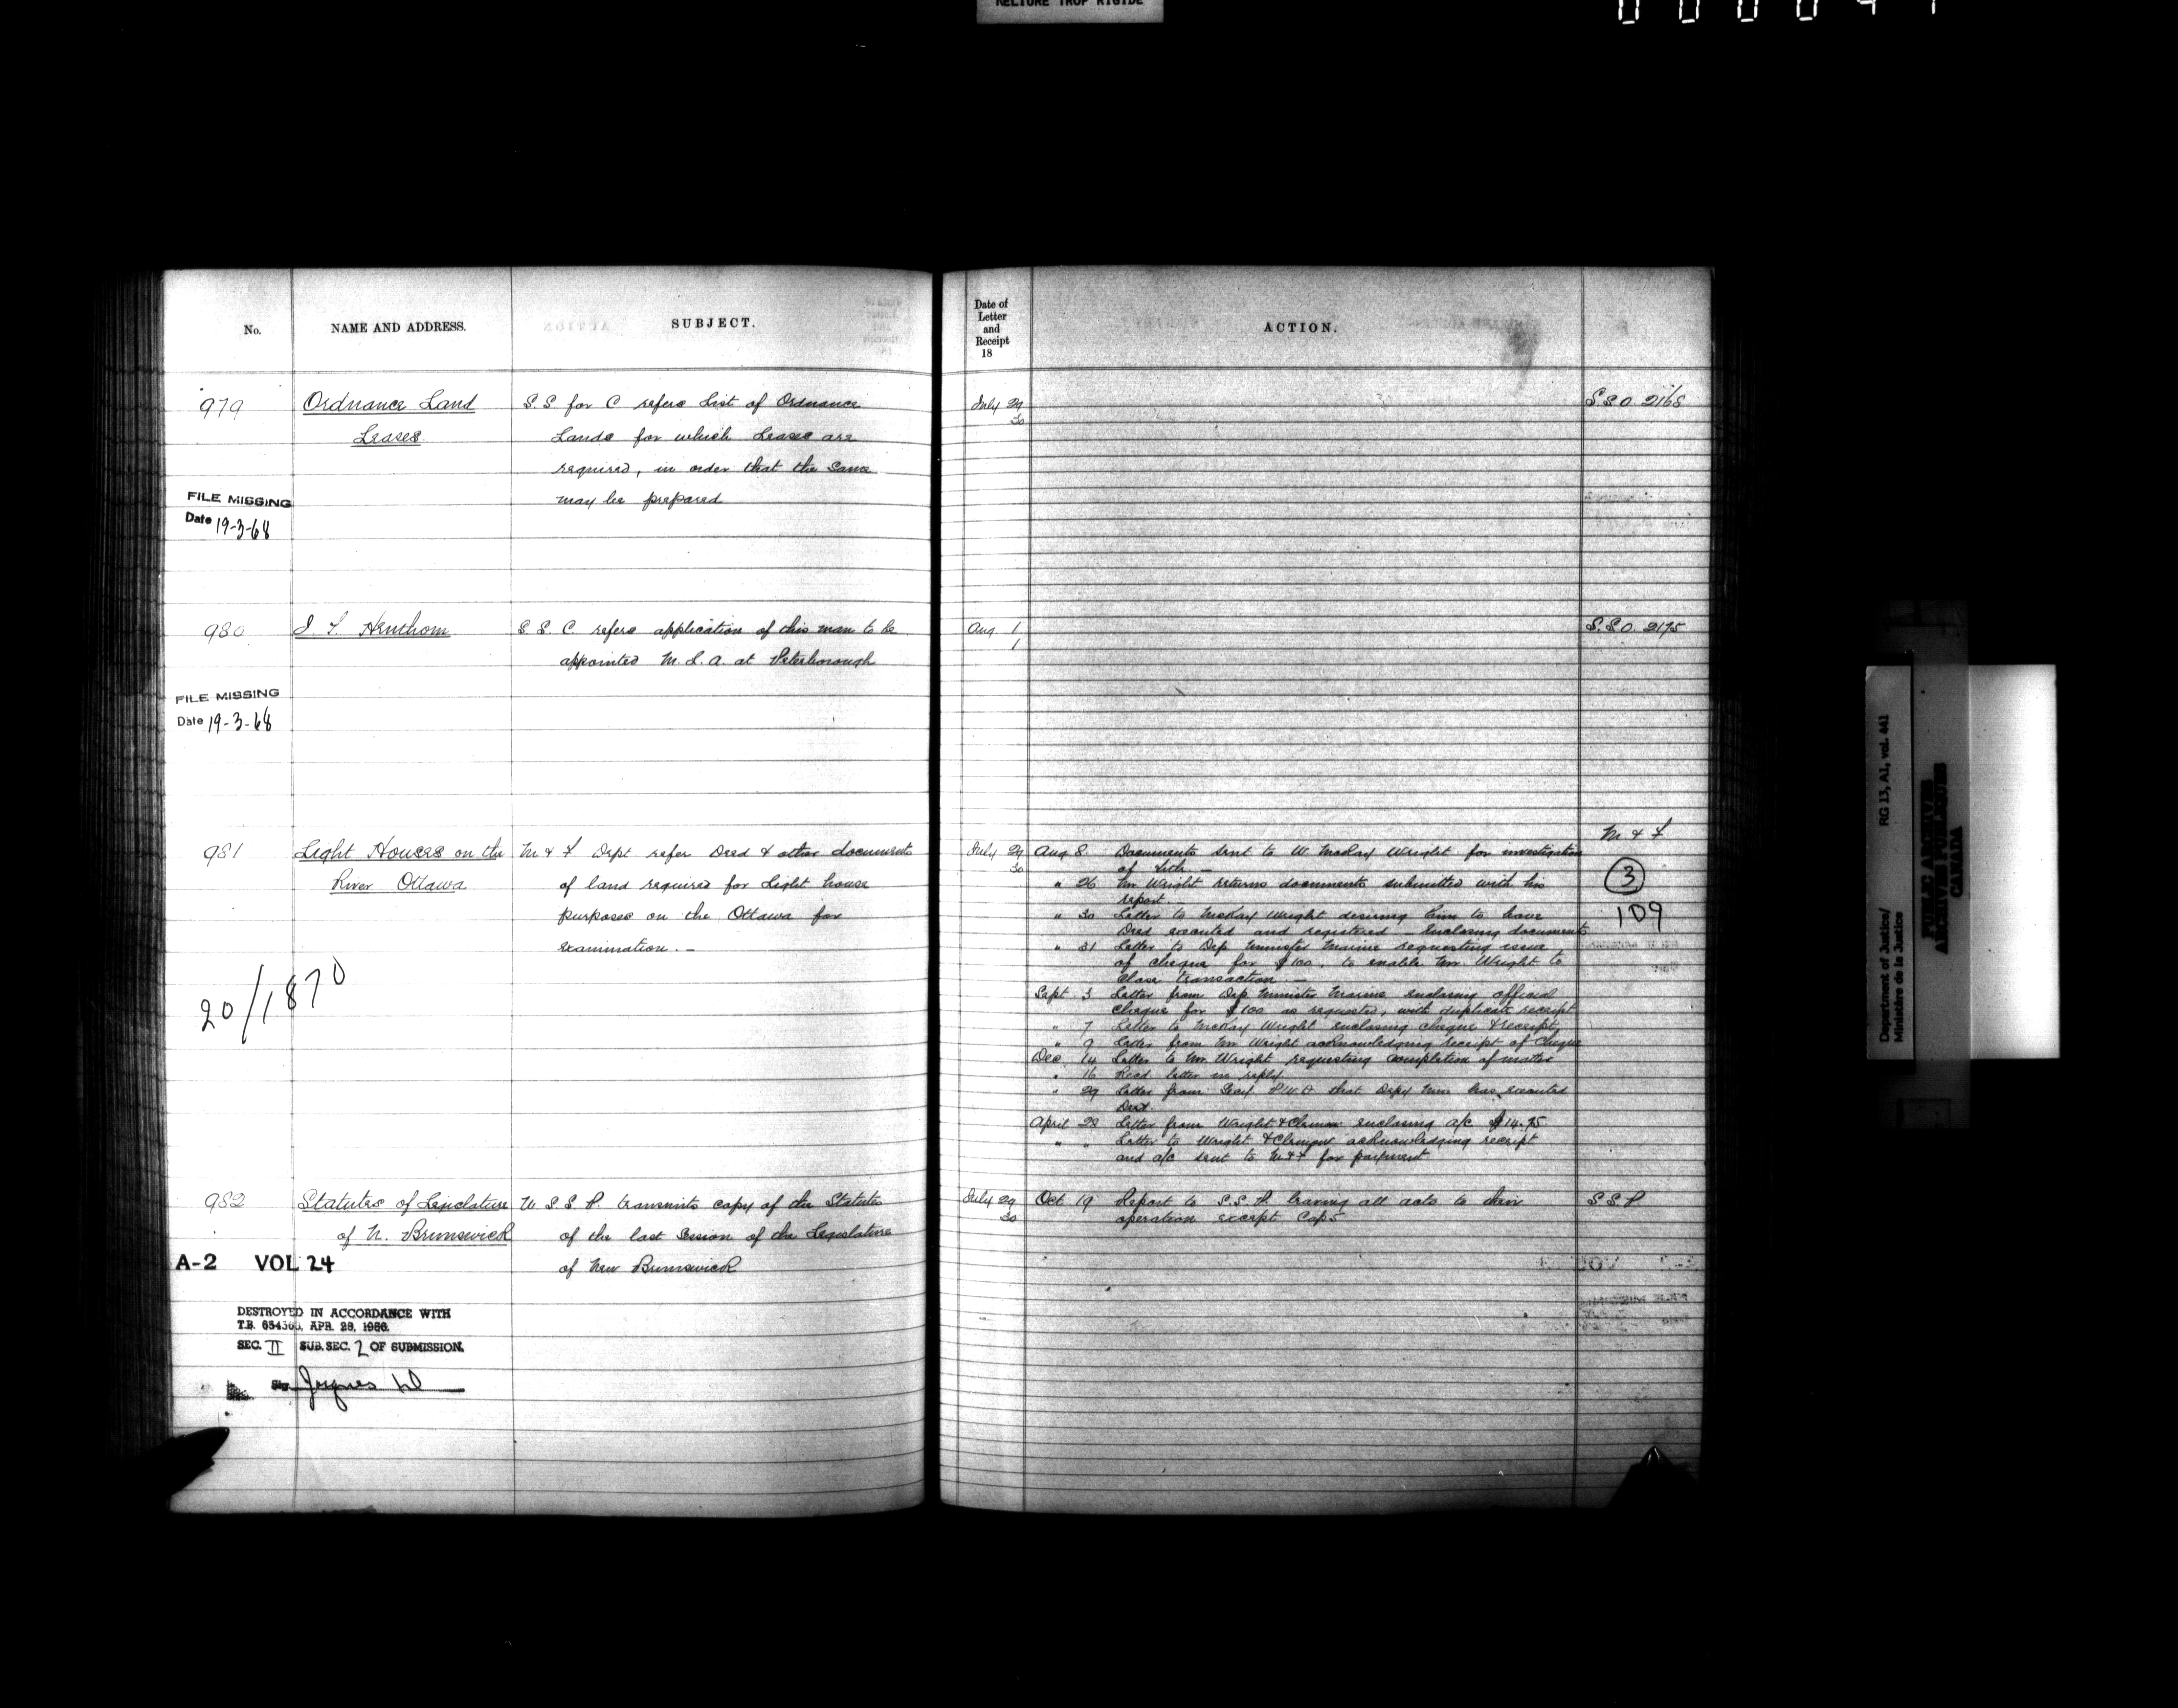 RELIURE TROP RIGIDE
No.
NAME AND ADDRESS.
SUBJECT.
979
Ordnance Land
Leases
S.S for C refers List of Ordnance
Lands for which Leases are
required, in order that the same
may be prepared
FILE MISSING
Date 19-3-68
980
S. S. C. refers application of this man to be
appointed M. L. A. at Peterborough
FILE MISSING
Date 19-3-68
981
Light Houses on the
River Ottawa
M & F Dept refer Deed & other documents
of land required for Light house
purposes on the Ottawa for
examination. —
20/1870
982
Statutes of Legislature
of N. Brunswick
U S. S. P. transmits copy of the Statutes
of the last Session of the Legislature
of New Brunswick
A-2 VOL 24
DESTROYED IN ACCORDANCE WITH
T.B. APR. 28, 1966.
SEC. II SUB. SEC. 2 OF SUBMISSION.
Date of
Letter
and
Receipt
18
ACTION.
July 29
30
S.S.O. 2168
Aug 1
1
S.S.O. 2175
M & F
3
109
July 29
30
Aug 8. Documents sent to W McKay Wright for investigation
of title —
" 26 Mr Wright returns documents submitted with his
report. —
" 30 Letter to McKay Wright desiring him to have
Deed executed and registered — Enclosing documents
" 31 Letter to Dep Minister Marine requesting issue
of cheque for $100. to enable Mr Wright to
Close transaction. —
Sept 3 Letter from Dep Minister Marine enclosing official
Cheque for $100 as requested, with duplicate receipt
" 7 Letter to McKay Wright enclosing cheque & receipt
" 9 Letter from Mr Wright acknowledging receipt of Cheque
Dec 14 Letter to Mr Wright requesting completion of matter
" 16 Recd letter in reply
" 29 Letter from Secy P.W.D that Depy Min has executed
Deed.
April 28 Letter from Wright & enclosing a/c $14.75
" " Letter to Wright & acknowledging receipt
and a/c sent to M & F for payment
July 29
30
Oct 19 Report to S.S.P. leaving all acts to their
operation except Cap 5
S S P.
Department of Justice/
Ministère de la Justice
RG 13, A1, vol. 441
PUBLIC ARCHIVES
ARCHIVES PUBLIQUES
CANADA